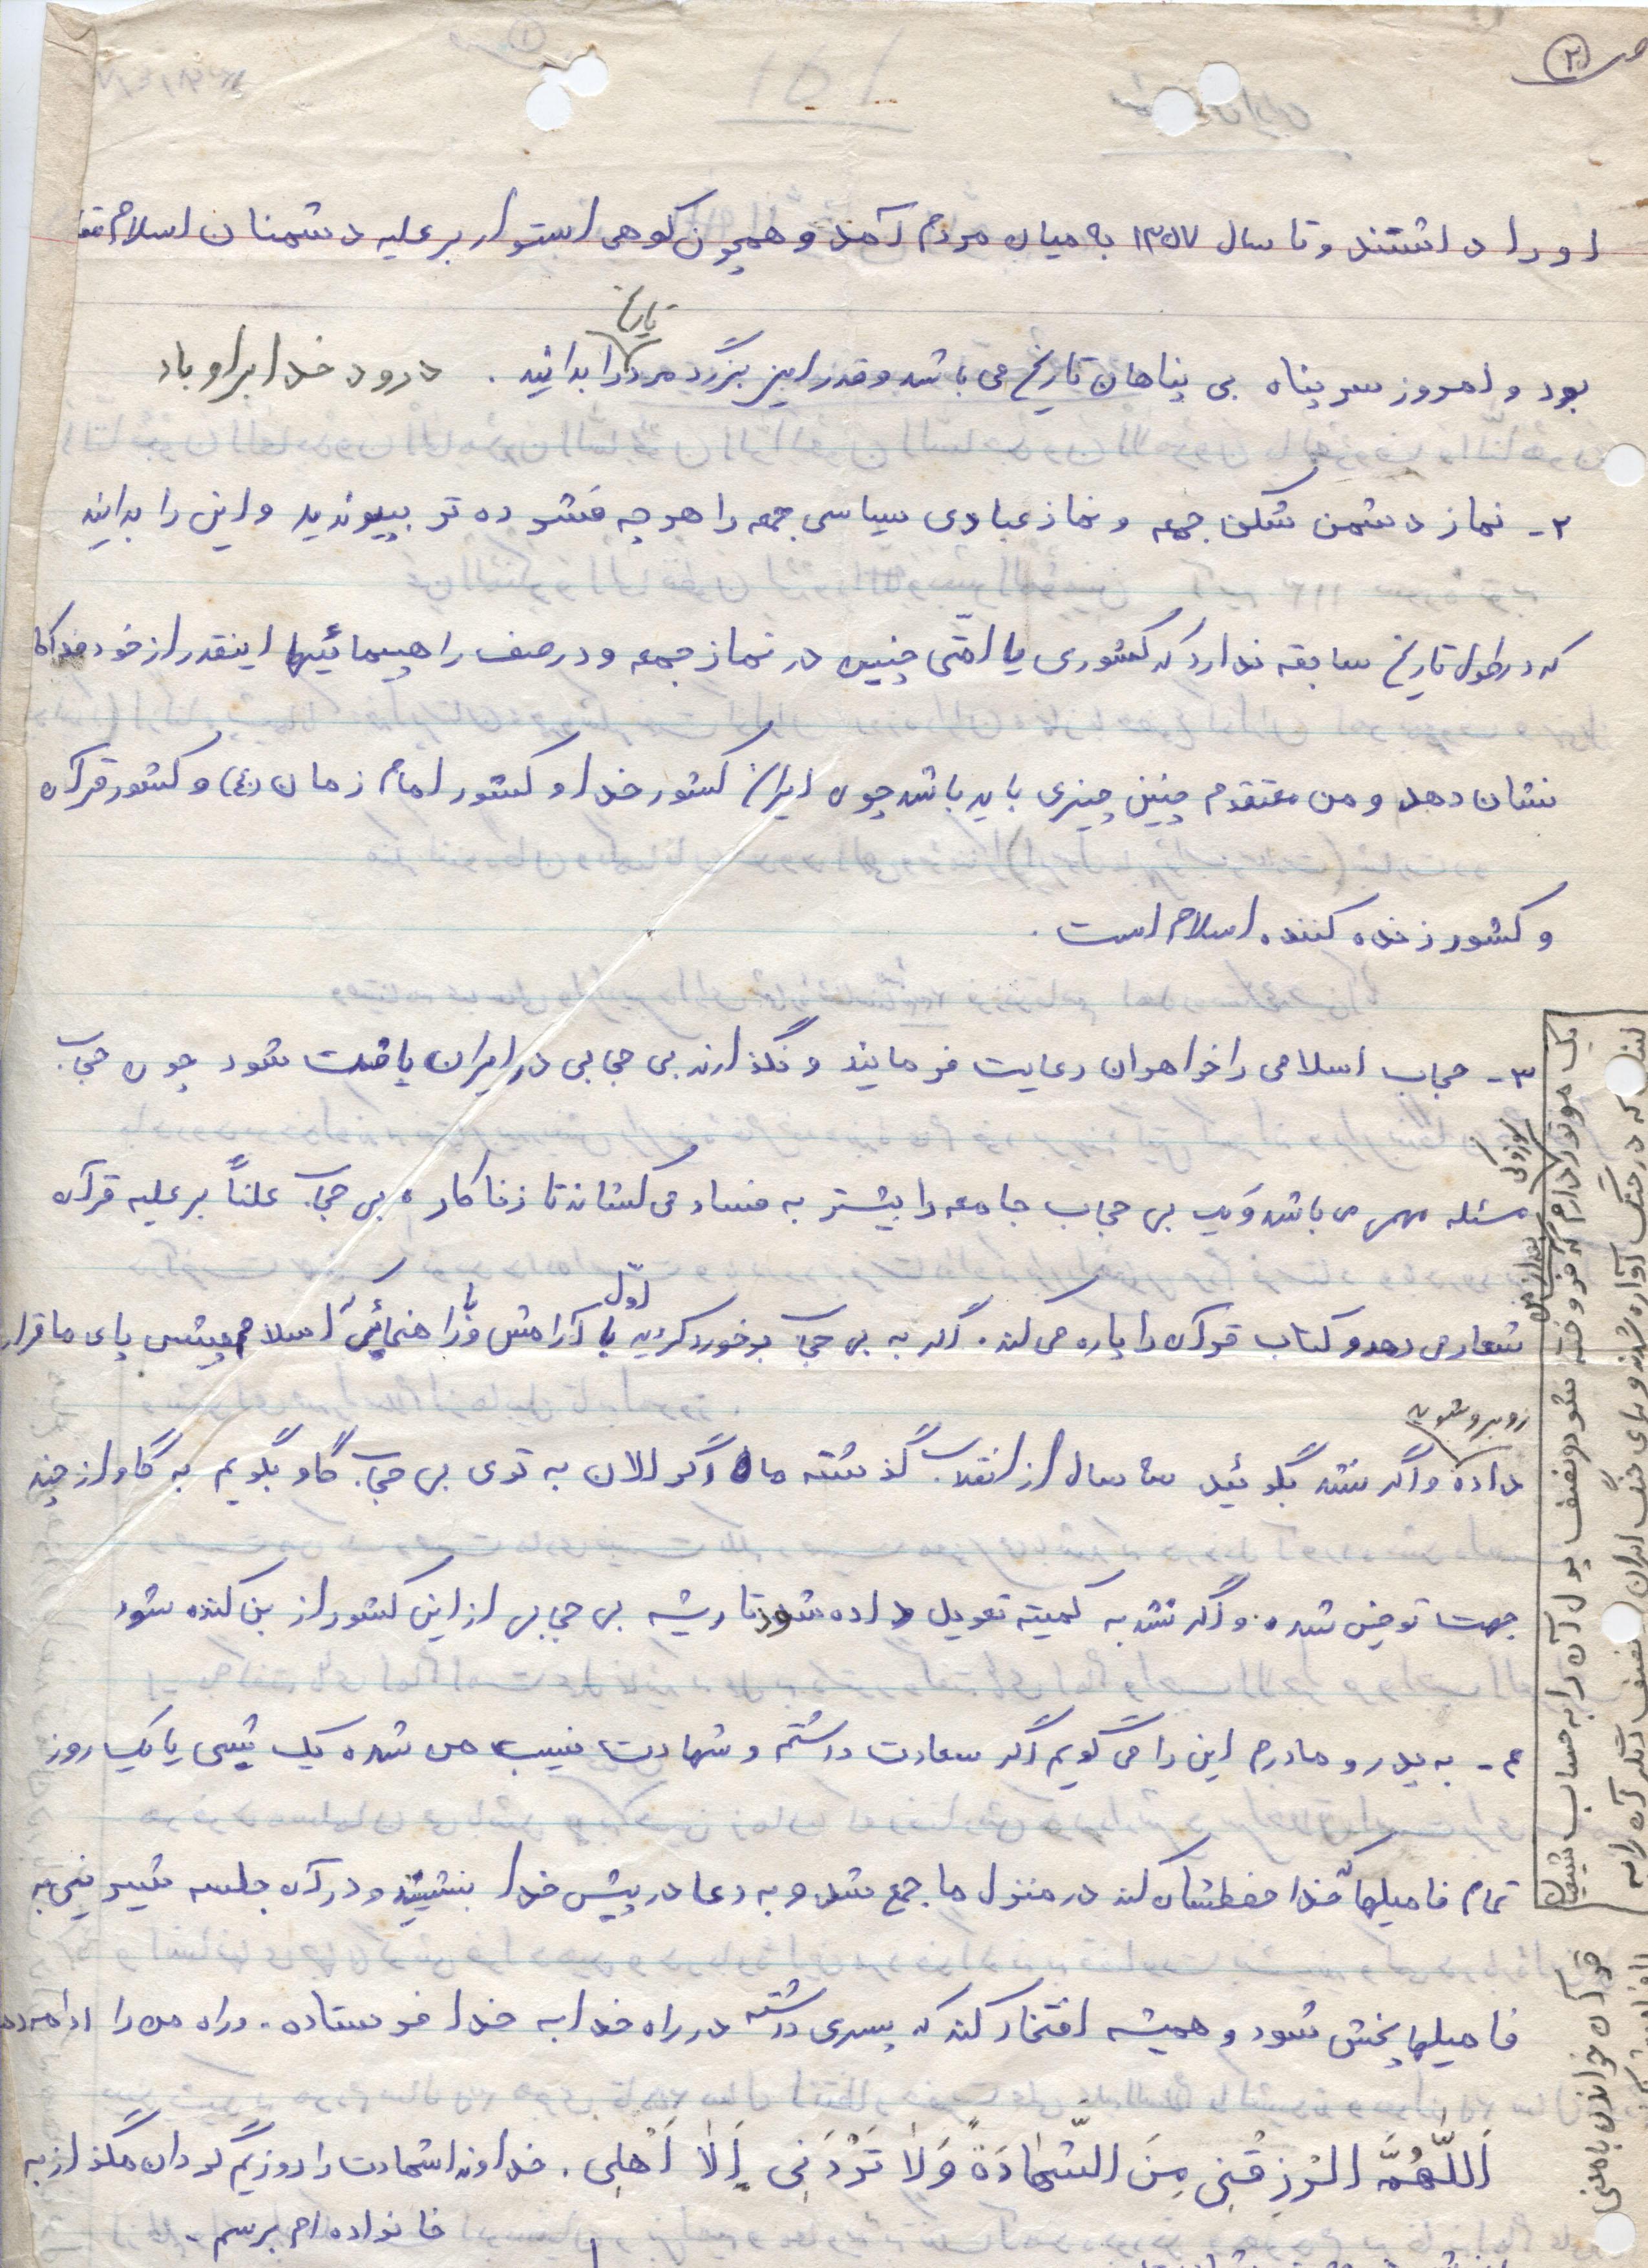 ص ۲
او را داشتند و تا سال ۱۳۵۷ به میان مردم آمد و همچون کوهی استوار بر علیه دشمنان اسلام
بود و امروز سرپناه بی پناهان تاریخ می باشد و قدر این بزرگ مرد تاریخ را بدانید . درود خدا بر او باد
۲- نماز دشمن شکن جمعه و نماز عبادی سیاسی جمعه را هر چه فشرده تر بپیوندید و این را بدانید
که در طول تاریخ سابقه ندارد که کشوری یا امّتی چنین در نماز جمعه و در صف راهپیمائیها اینقدر از خود
نشان دهد و من معتقدم چنین چیزی باید باشد چون ایران کشور خدا و کشور امام زمان (عج) و کشور قرآن
و کشور زنده کننده اسلام است .
۳- حجاب اسلامی را خواهران رعایت فرمایند و نگذارند بی حجابی در ایران یافت شود چون حجاب
مسئله مهمی می باشد و یک بی حجاب جامعه را بیشتر به فساد می کشاند تا زناکار . بی حجاب علناً بر علیه قرآن
شعار می دهد و کتاب قرآن را پاره می کند . اگر به بی حجاب برخورد کردید اوّل با آرامش و با راهنمائی که اسلام پیش پای ما قرار
داده روبرو شوید و اگر نشد بگوئید سال از انقلاب گذشته ما اگر الان به توی بی حجاب گاو بگویم به گاو از چند
جهت توهین شده . و اگر نشد به کمیته تحویل داده شود تا ریشه بی حجابی از این کشور از بن کنده شود
۴- به پدر و مادرم این را می گویم اگر سعادت داشتم و شهادت نصیب من شد یک شبی یا یک روز
تمام فامیلها که خدا حفظشان کند در منزل ما جمع شده و به دعا در پیش خدا بنشینند و در آن جلسه شیرینی به
فامیلها پخش شود و همیشه افتخار کند که پسری داشته در راه خدا به خدا فرستاده . و راه من را ادامه
اَللّهُمَّ الرْزِقْنی مِنَ الشَّهادَةً وَلاٰ تَرُدَّنی اِلاٰ اَهْلِی . خداوندا شهادت را روزیم گردان مگذار به
خانواده ام برسم .
یک موتور سوزوکی دارم که بعد از من فروخته شود و نصف پول آن را به حساب شیعیان
لبنان که در جنگ آواره شدند و برای جنگ ایران نصف دیگر آن را به
قرآن خواندن با معنی